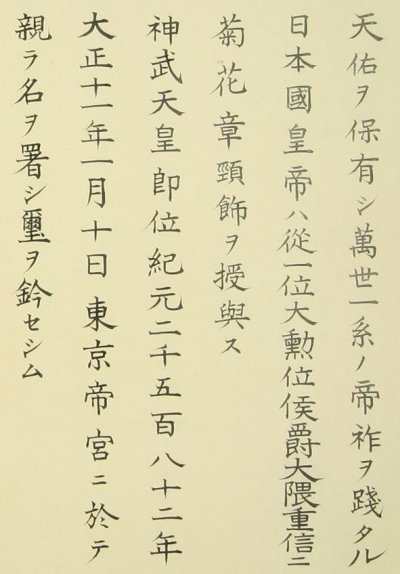 天佑ヲ保有シ萬世一系ノ帝祚ヲ踐タル
日本國皇帝ハ從一位大勲位侯爵大隈重信ニ
菊花章頸飾ヲ授與ス
神武天皇即位紀元二千五百八十二年
大正十一年一月十日東京帝宮ニ於テ
親ラ名ヲ署シ璽ヲ鈐セシム